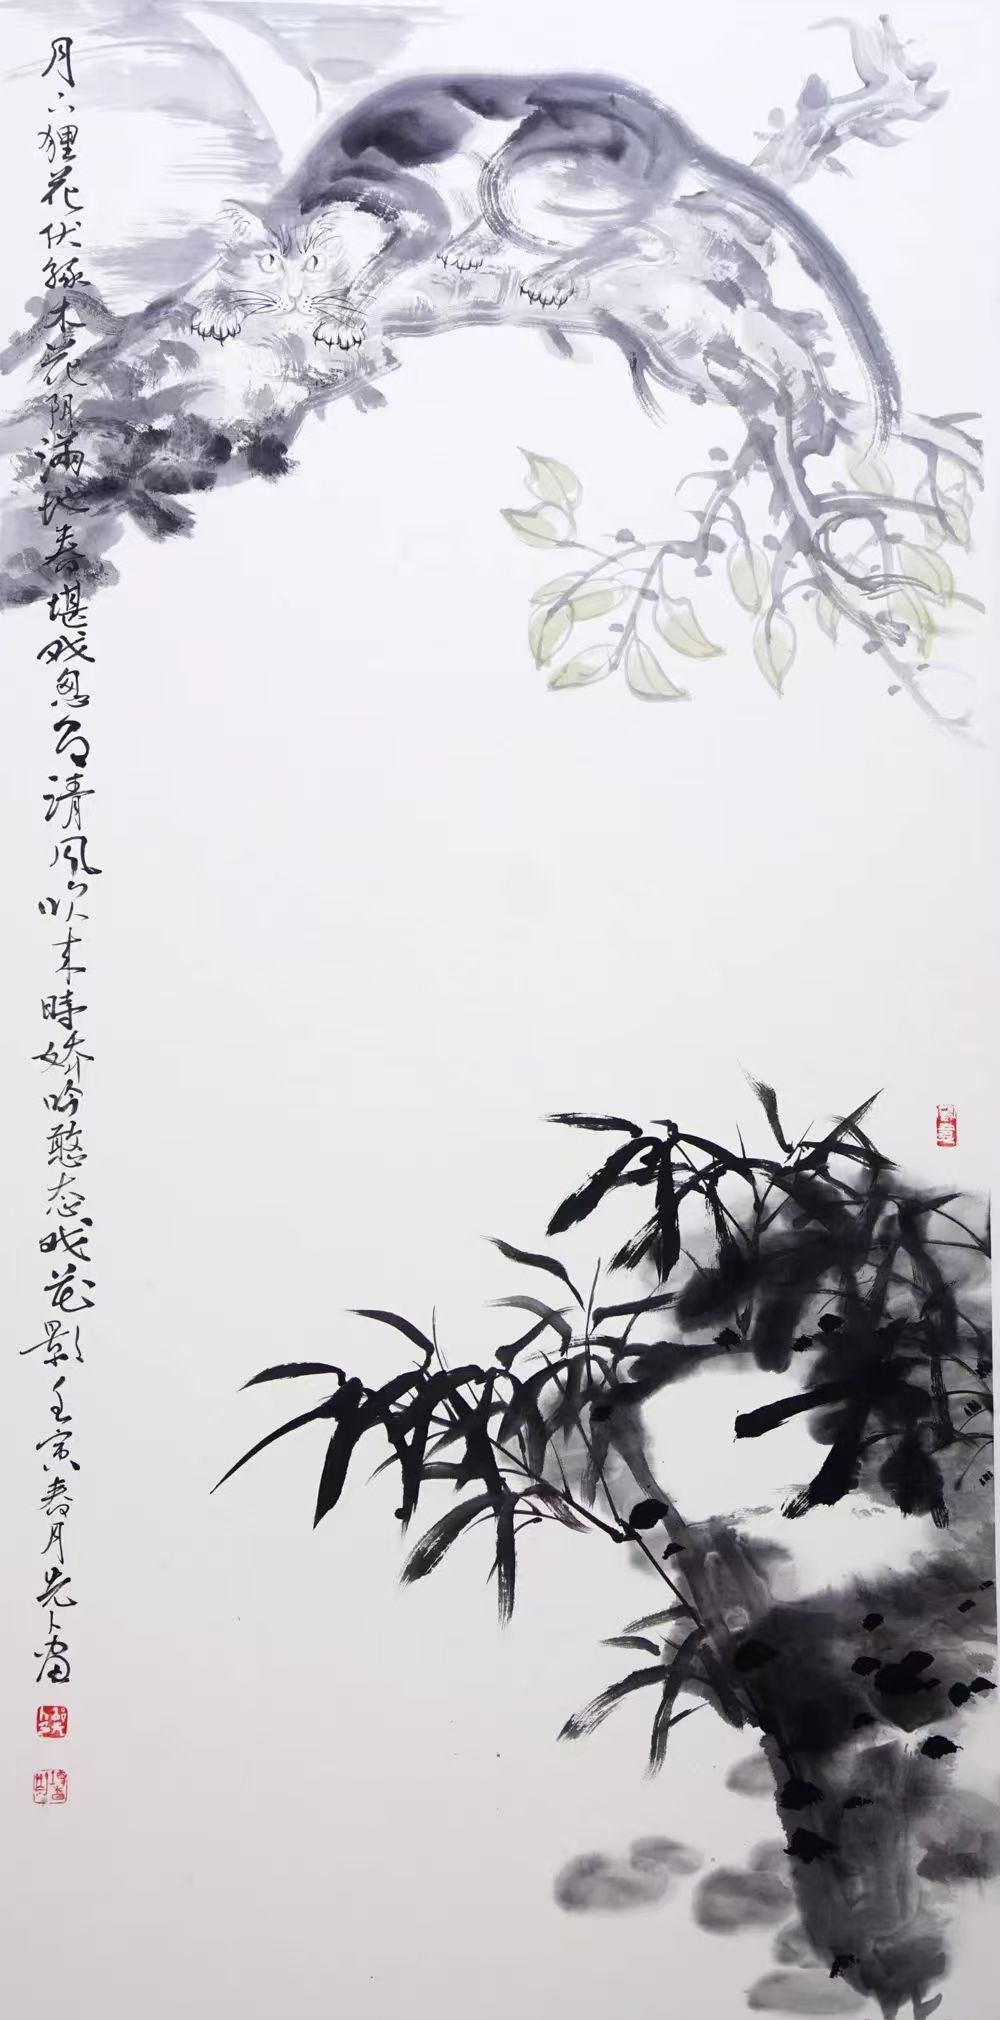 月下狸花伏绿木花阴满地春堪戏忽句清风吹来時娇吟憨态戏花影壬寅春月先卜画